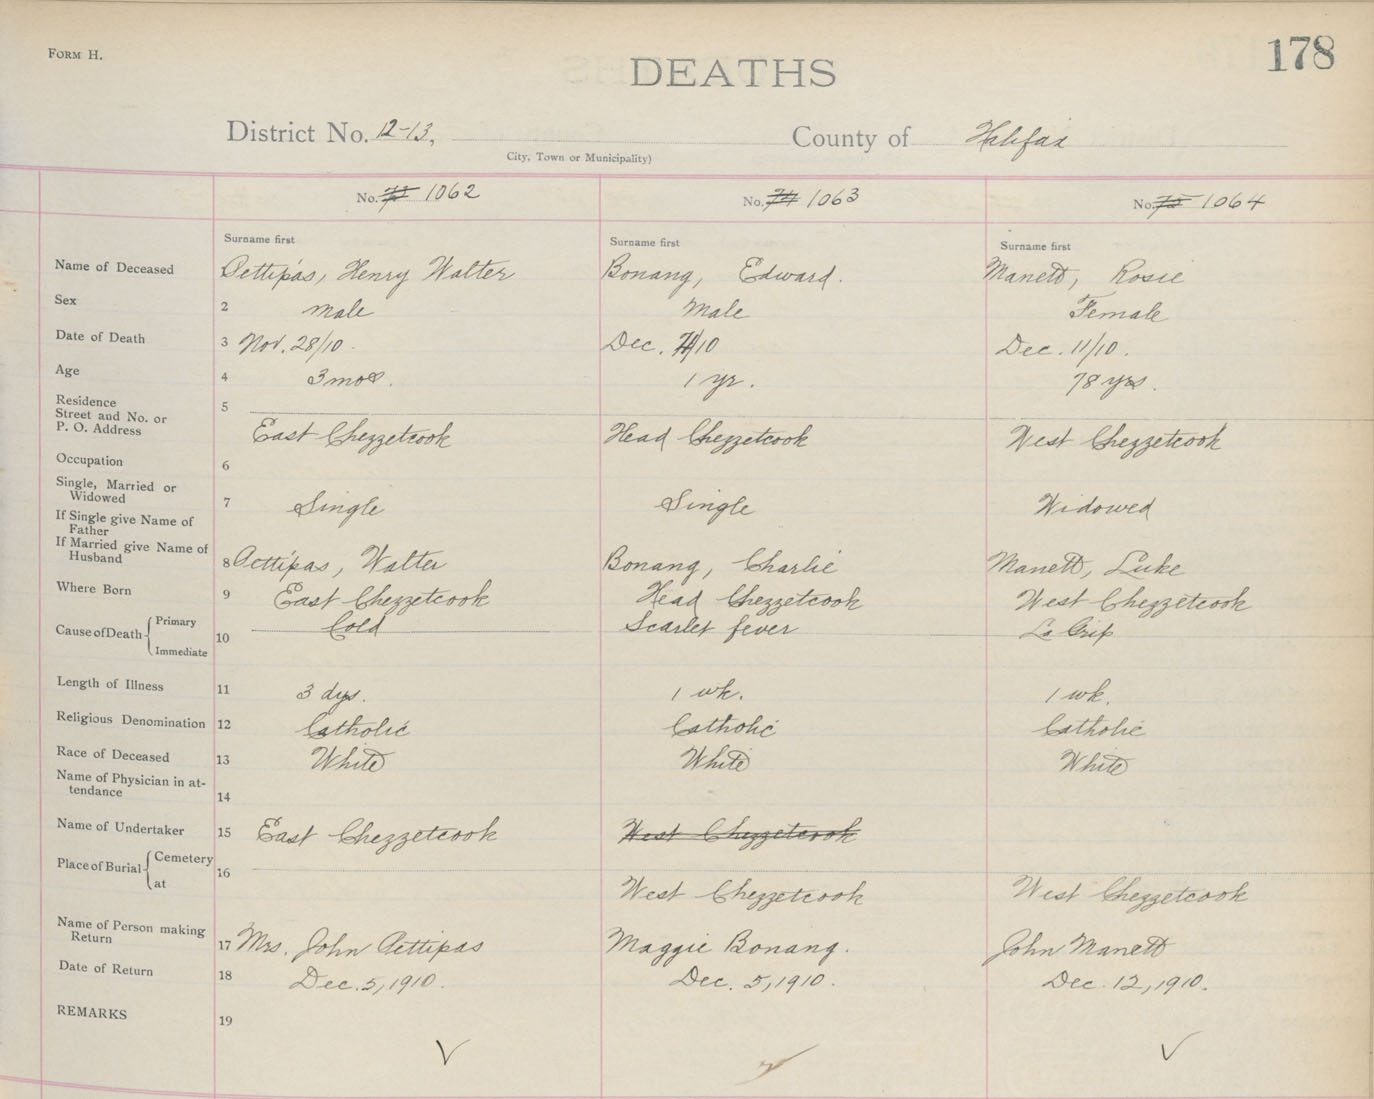 FORM H.
178
DEATHS
District No. 12-13,
County of Halifax
City, Town or Municipality)
No. 1062
No. 74 1063
No. 75 1064
Surname first
Surname first
Surname first
Name of Deceased Pettipas, Henry Walter Bonang, Edward. Manett, Rosie
Sex 2 male Male Female
Date of Death 3 Nov. 28/10 Dec. /10 Dec. 11/10.
Age 4 3 mos. 1 yr. 78 yrs.
Residence
Street and No. or 5
P. O. Address East Chezzetcook Head Chezzetcook West Chezzetcook
Occupation 6
Single, Married or
Widowed 7 Single Single Widowed
If Single give Name of
Father
If Married give Name of
Husband 8 Pettipas, Walter Bonang, Charlie Manett, Luke
Where Born 9 East Chezzetcook Head Chezzetcook West Chezzetcook
Cause of Death Primary 10 Cold Scarlet fever La Grip
Immediate
Length of Illness 11 3 dys. 1 wk. 1 wk.
Religious Denomination 12 Catholic Catholic Catholic
Race of Deceased 13 White White White
Name of Physician in at-
tendance 14
Name of Undertaker 15 East Chezzetcook West Chezzetcook
Place of Burial Cemetery 16
at West Chezzetcook West Chezzetcook
Name of Person making
Return 17 Mrs. John Pettipas Maggie Bonang. John Manett
Date of Return 18 Dec. 5, 1910. Dec. 5, 1910. Dec. 12, 1910.
REMARKS 19